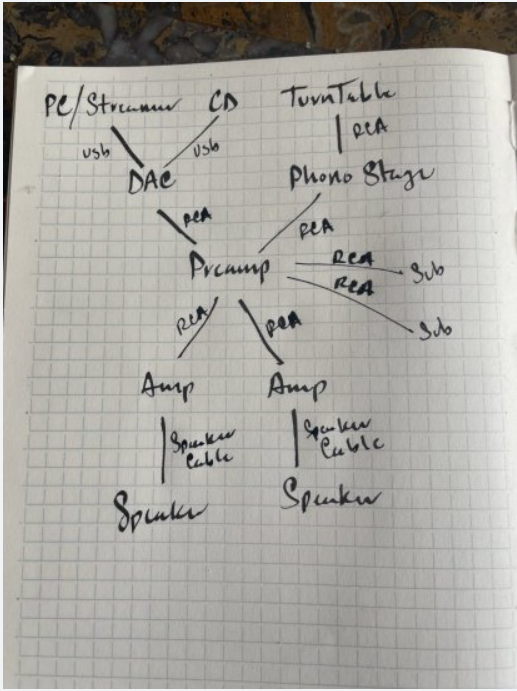 PC/Streamer CD TurnTable
usb usb RCA
DAC Phono Stage
RCA RCA
Preamp RCA Sub
RCA
RCA RCA Sub
Amp Amp
Speaker Cable Speaker Cable
Speaker Speaker